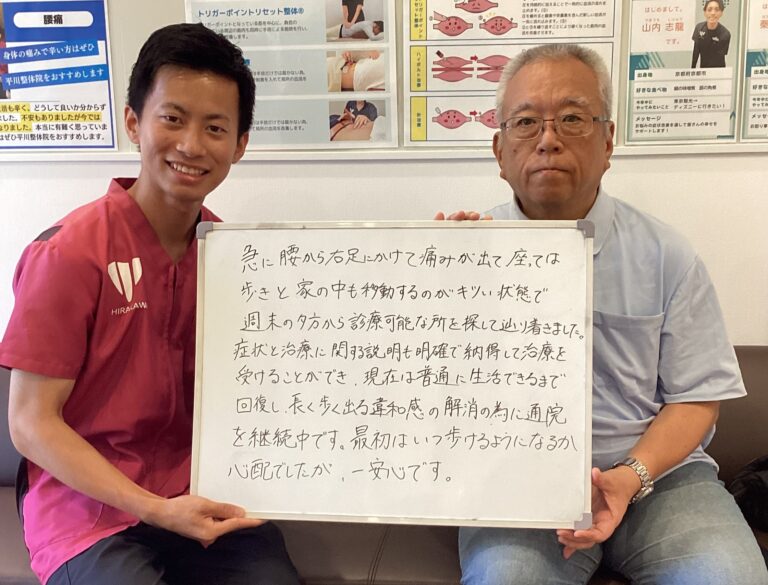 腰痛
身体の痛みで辛い方はぜひ
平川整体院をおすすめします
どうして良いか分からず
不安もありましたが今では
本当に有難く思っていま
ぜひ平川整体院をおすすめします。
トリガーポイントリセット整体®
はじめまして。
山内 志龍
です。
出身地
京都府京都市
好きな食べ物
東京観光→
ディズニーに行きたい!
メッセージ
HIRAKAWA
急に腰から右足にかけて痛みが出て座っては
歩きと家の中も移動するのがキツい状態で
週末の夕方から診療可能な所を探して辿り着きました。
症状と治療に関する説明も明確で納得して治療を
受けることができ、現在は普通に生活できるまで
回復し、長く歩く出る違和感の解消の為に通院
を継続中です。最初はいつ歩けるようになるか
心配でしたが、一安心です。